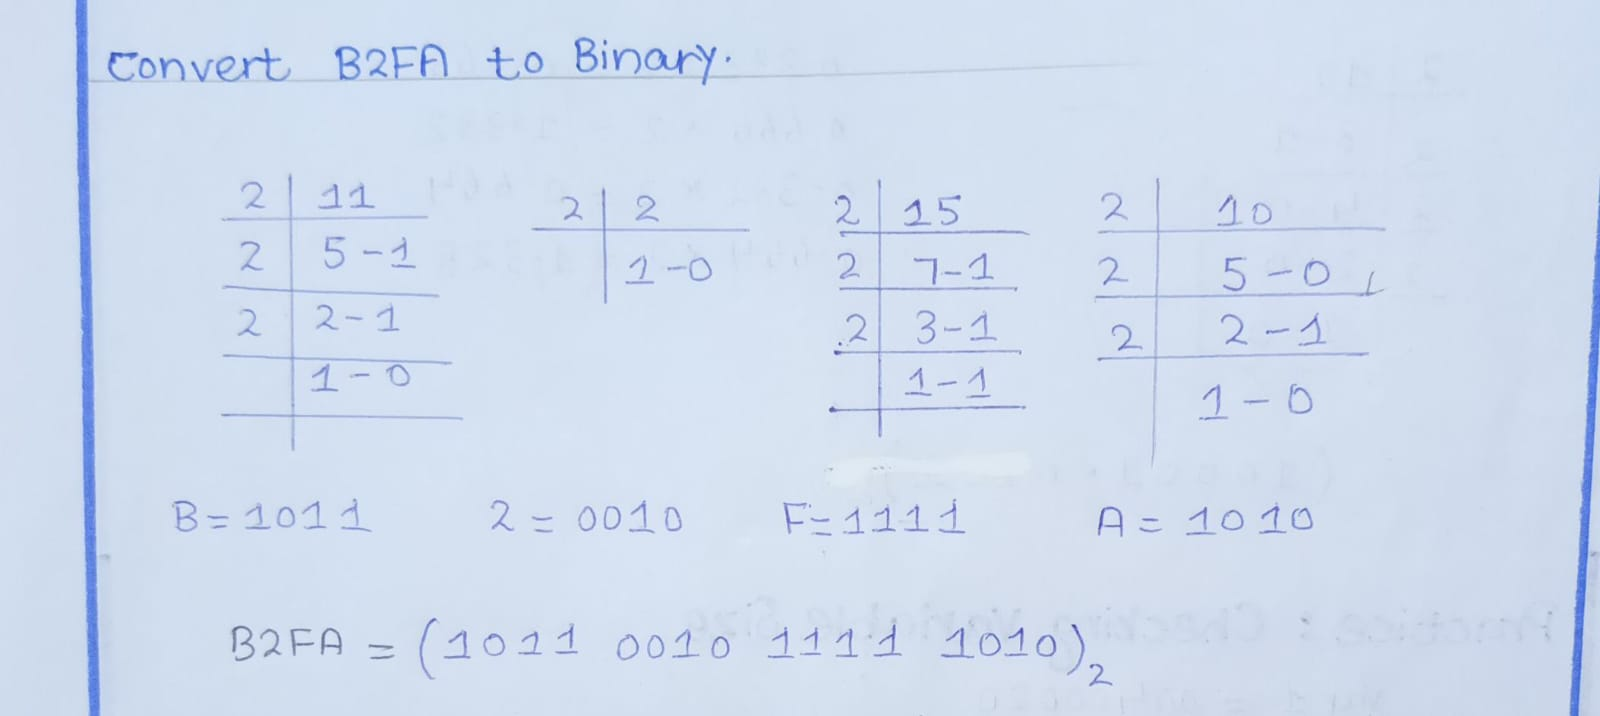 Convert B2FA to Binary.
2 | 11
2 | 5-1
2 | 2-1
1-0
2 | 2
1-0
2 | 15
2 | 7-1
2 | 3-1
1-1
2 | 10
2 | 5-0
2 | 2-1
1-0
B=1011 2=0010 F=1111 A=1010
B2FA = (1011 0010 1111 1010)2